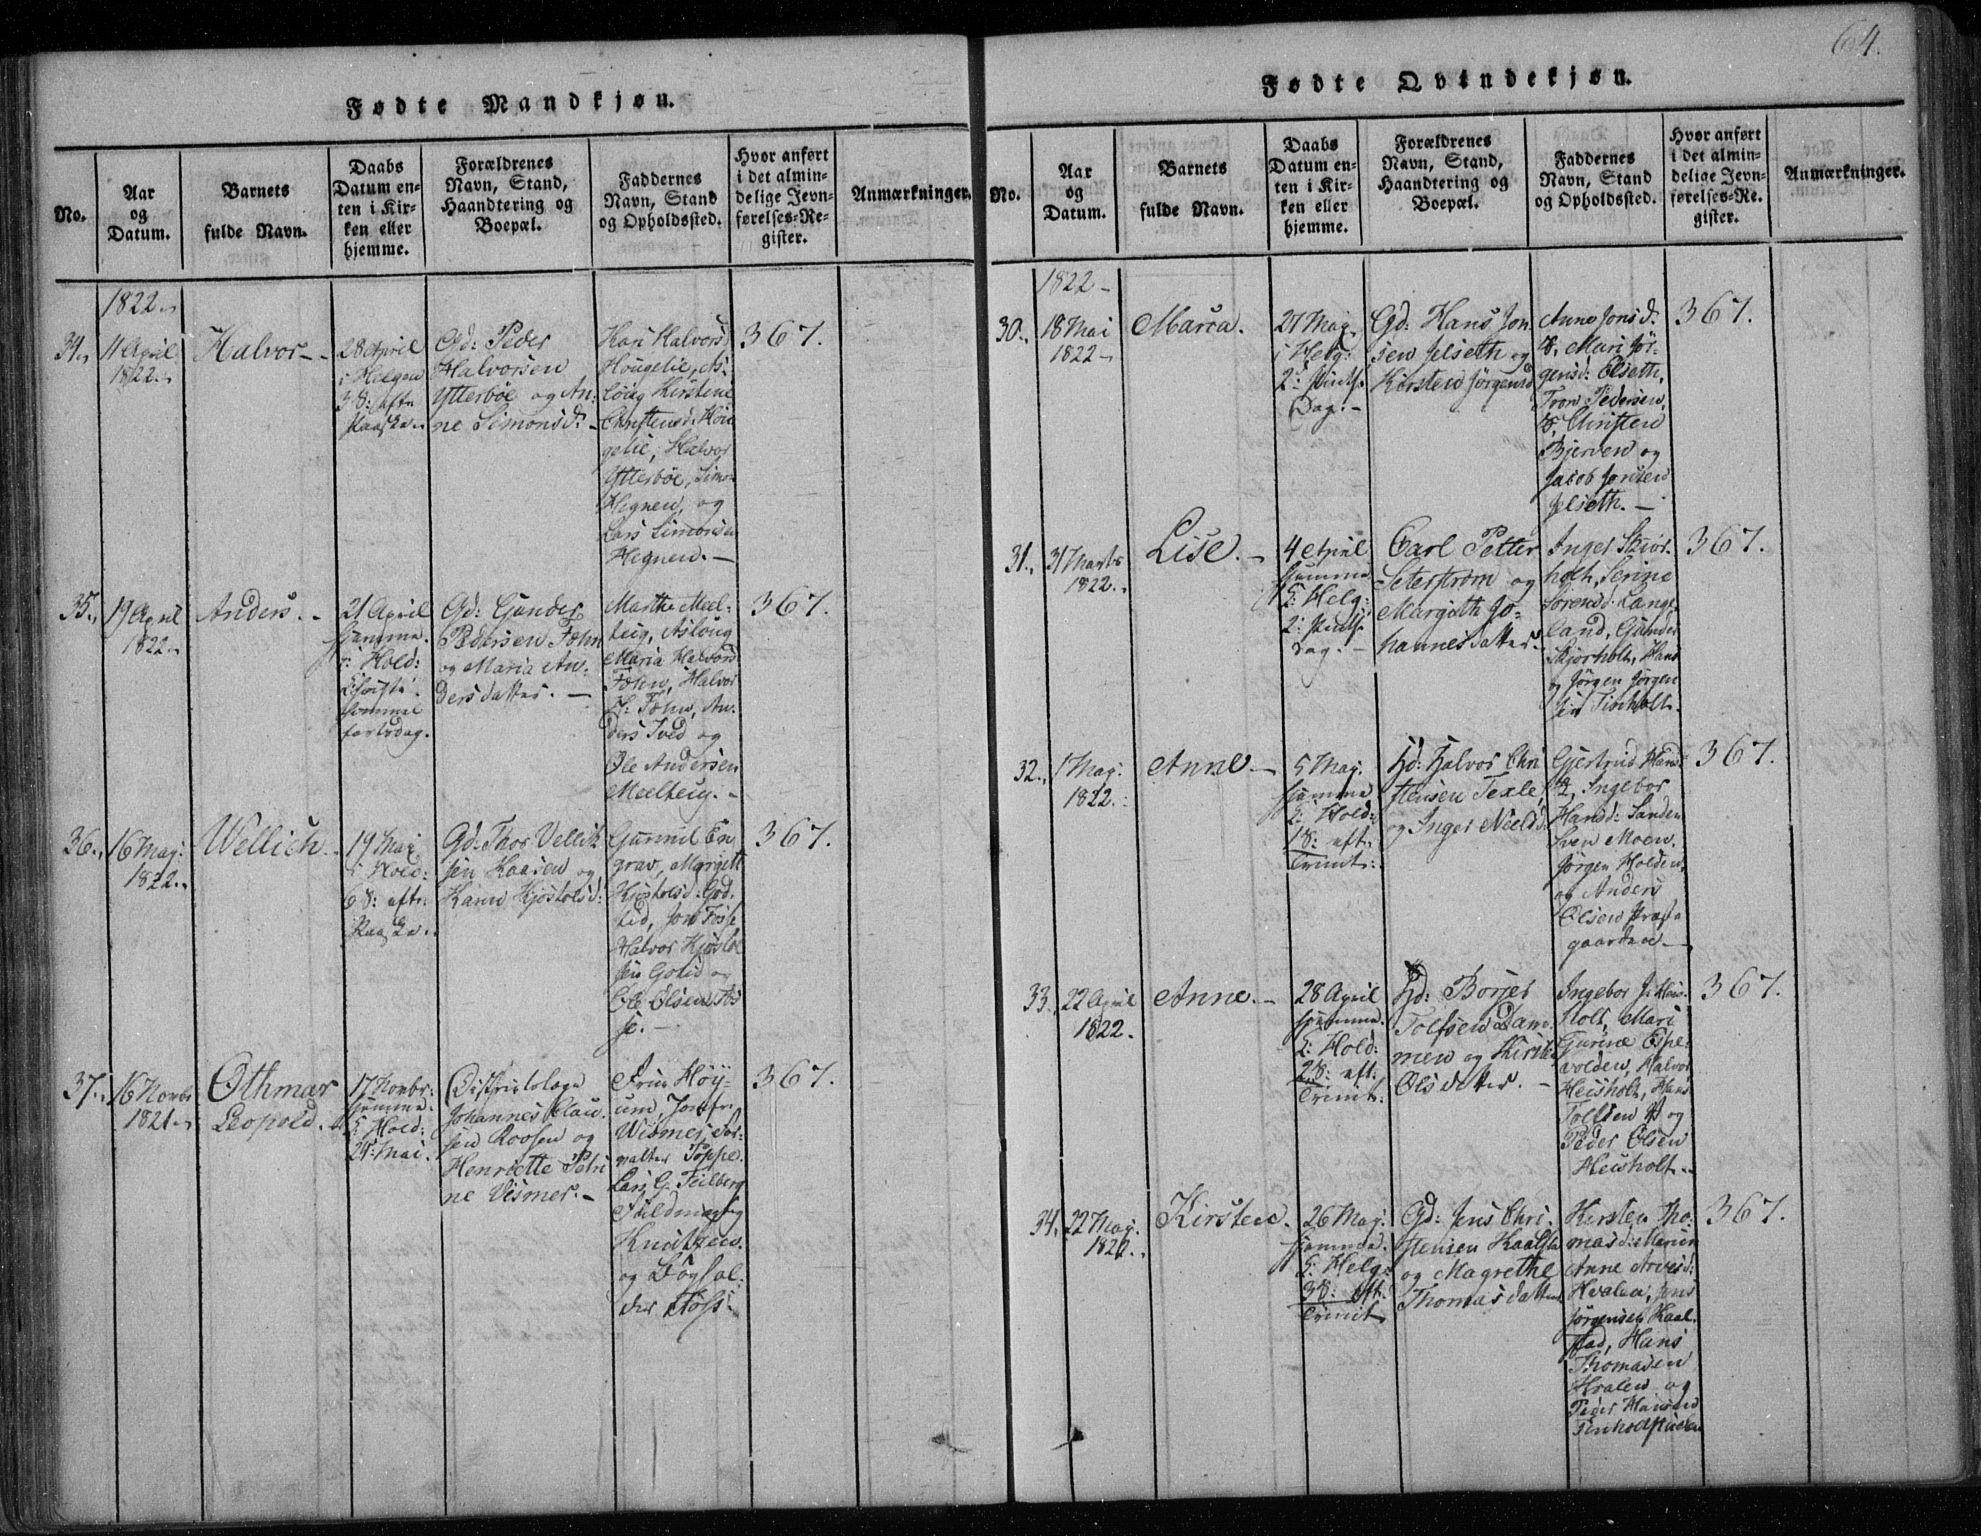 64.
Fødte Mandkjøn.
No.
Aar
og
Datum.
Barnets
fulde Navn.
Daabs
Datum en-
ten i Kir-
ken eller
hjemme.
Forældrenes
Navn, Stand,
Haandtering og
Boepæl.
Faddernes
Navn, Stand
og Opholdssted.
Hvor anført
i det almin-
delige Jevn-
førelses-Re-
gister.
Anmærkninger.
1822.
34.
11 April
1822.
Halvor
28 April
i Helgen
3 S: efter
Paaske.
Gd: Peder
Halvorsen
Ytterbøe og An-
ne Simonsd:
Kari Halvorsd:
Hougelie, As-
loug Kirstine
Christensd:
gelie, Halvor
Ytterbøe, Simo-
Hegnen, og
Lars Simonsen
Hegnen.
367.
35.
19 April
1822.
Anders.
21 April
hjemme.
i Hold:
Christi
Himmel
fartsdag.
Gd: Gunder
Pedersen
og Maria An-
dersdatter.
Marthe Meel-
teig, Asloug
Maria Halvorsd:
Halvor
An-
ders Tved og
Ole Andersen
Meelteig.
367.
36.
16 May
1822.
Wellich.
19 May
i Hold:
6 S: eftr:
Paaske.
Gd: Thor Vellik-
sen Kaasen og
Karen Kjøstolsd:
Gunnil En-
grav, Margett
Kjøstolsd: God-
tid, Jon Fosse
Halvor Kjøstol
sen Gotid og
Ole Olsen Fos
se.
367.
37.
16 Novbr
1821.
Othmar
Leopold.
17 Novbr:
hjemme.
i Hold:
24 Mai.
Districtslæge
Johannes Clau-
sen Roosen og
Henriette Petri
ne Vismer.
Frue Höy-
um, Jomfr.
Wismer, For-
valter Poppe.
Lars G. Feilberg
Fuldmægtig
Knutzen.
og Boghol-
der
367.
Fødte Qvindekjøn.
No.
Aar
og
Datum.
Barnets
fulde Navn.
Daabs
Datum en-
ten i Kir-
ken eller
hjemme.
Forældrenes
Navn, Stand,
Haandtering og
Boepæl.
Faddernes
Navn, Stand
og Opholdssted.
Hvor anført
i det almin-
delige Jevn-
førelses-Re-
gister.
Anmærkninger.
1822
30.
18 Mai
1822
Maria.
27 May
i Helg:
2: Pintse
Dag.
Gd: Hans Jon-
sen Jelseth og
Kirsten Jørgensd
Anne Jonsd:
Mari Jør-
gensd: Elseth,
Tron Pedersen
Christen
Bjerven og
Jacob Jonsen
Jelseth.
367.
31.
31 Marts
1822.
Lise.
4 April
hjemme
i Helg:
2: Pintse
Dag.
Carl Petter
Seterstrøm og
Margith Jo-
hannesdatter.
Inger Skior-
holt, Serine
Sörensd: Lange-
land, Gunder
Skjørholt, Hans
og Jörgen Jörgen
sen
367.
32.
1 May
1822.
Anne
5 May
hjemme
i Hold:
1 S: eft:
Trinit:
Hd: Halvor Chri
stensen Texle,
og Inger Nielsd:
Gjertrud Hansd:
Ingebor
Hansd: Sanden
Sven Moen,
Jørgen Holden,
og Anders
Olsen Præste
gaarden
367.
33.
22 April
1822.
Anne.
28 April
hjemme.
i Hold:
2 S: eft:
Trinit:
Hd: Borger
Tolfsen Dam-
men og Kirsti
Olsdatter.
Ingebor J. Heis-
holt, Mari
Gurine Espe-
volden, Halvor
Heisholt, Hans
Tollsen og
Peder Olsen
Heisholt.
367.
34.
22 May
1822.
Kirsten.
26 May
hjemme.
i Helg:
3 S: eft:
Trinit
Gd: Jens Chri-
stensen Kaalsta
og Magrethe
Thomasdatter
Kirsten Tho-
masd:
Anne Arvesd:
Hvalen, Jens
Jørgensen Kaal-
stad, Hans
Thomasen
Hvalen og
Peder Hansen
367.